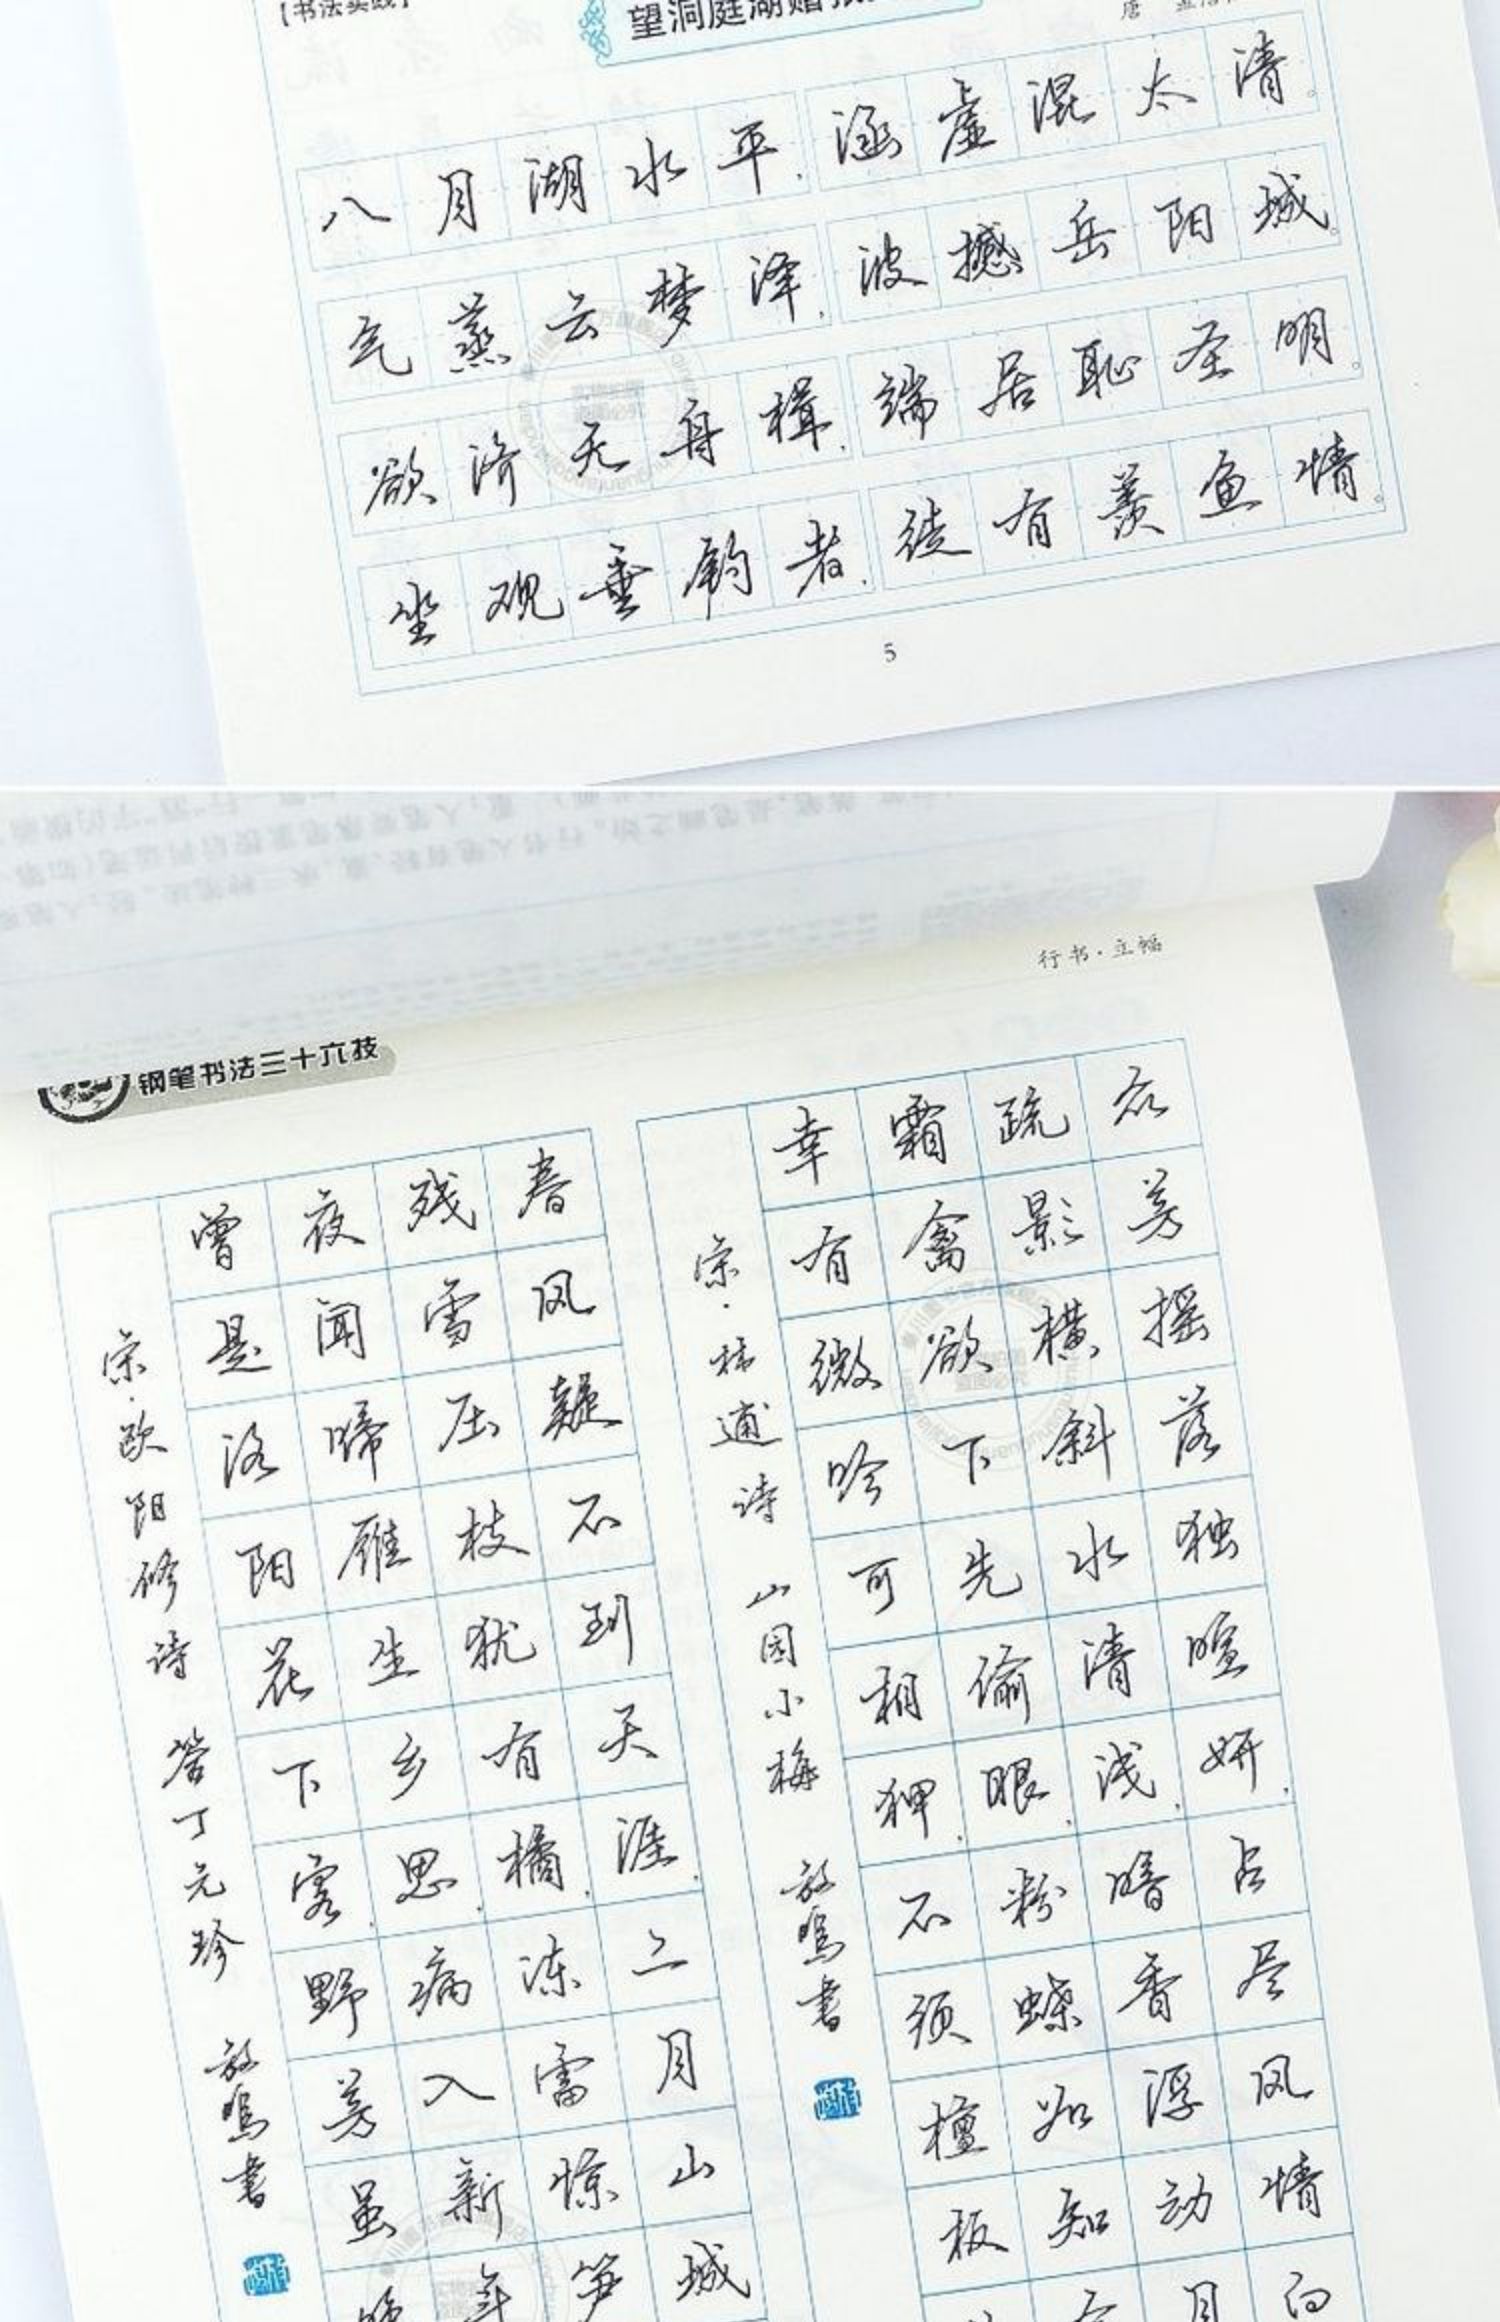 【书法实践】
望洞庭湖赠张
唐
八月湖水平，涵虚混太清。
气蒸云梦泽，波撼岳阳城。
欲济无舟楫，端居耻圣明。
坐观垂钓者，徒有羡鱼情。
5
行书·立幅
钢笔书法三十六技
众芳摇落独暄妍，占尽风情向
疏影横斜水清浅，暗香浮动月
霜禽欲下先偷眼，粉蝶如知合
幸有微吟可相狎，不须檀板
宋·林逋诗 山园小梅 放鸣书
春风疑不到天涯，二月山城
残雪压枝犹有橘，冻雷惊笋
夜闻啼雁生乡思，病入新年
曾是洛阳花下客，野芳虽晚
宋·欧阳修诗 答丁元珍 放鸣书